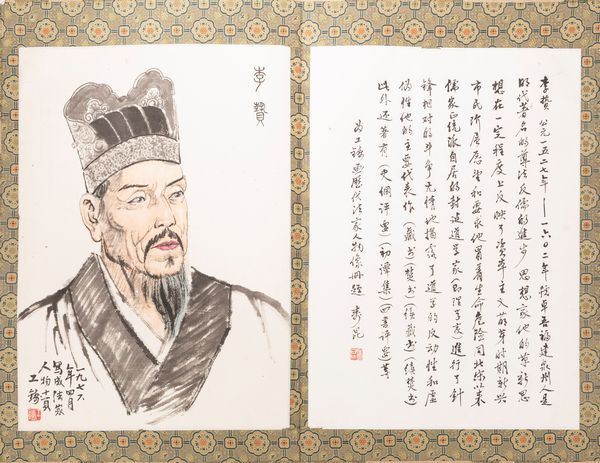 李贄
一九七六
年四月
寫成法家
人物
工
李贄 公元一五二七年——一六〇二年號卓吾福建泉州人是
明代著名的尊法反儒的進步思想家他的 新思
想在一定程度上反映了資本主义萌芽时期新兴
市民阶层愿望和要求他冒着生命危险同北宋以来
儒家正统派自居的封建道学家(即理学家)進行了針
锋相对的斗争无情地揭露了道学的反动性和虚
伪性他的主要代表作(藏书)(焚书)(续藏书)(续焚书)
此外还著有(史纲评要)(初谭集)(四书评)等
为工 画历代法家人物像册题